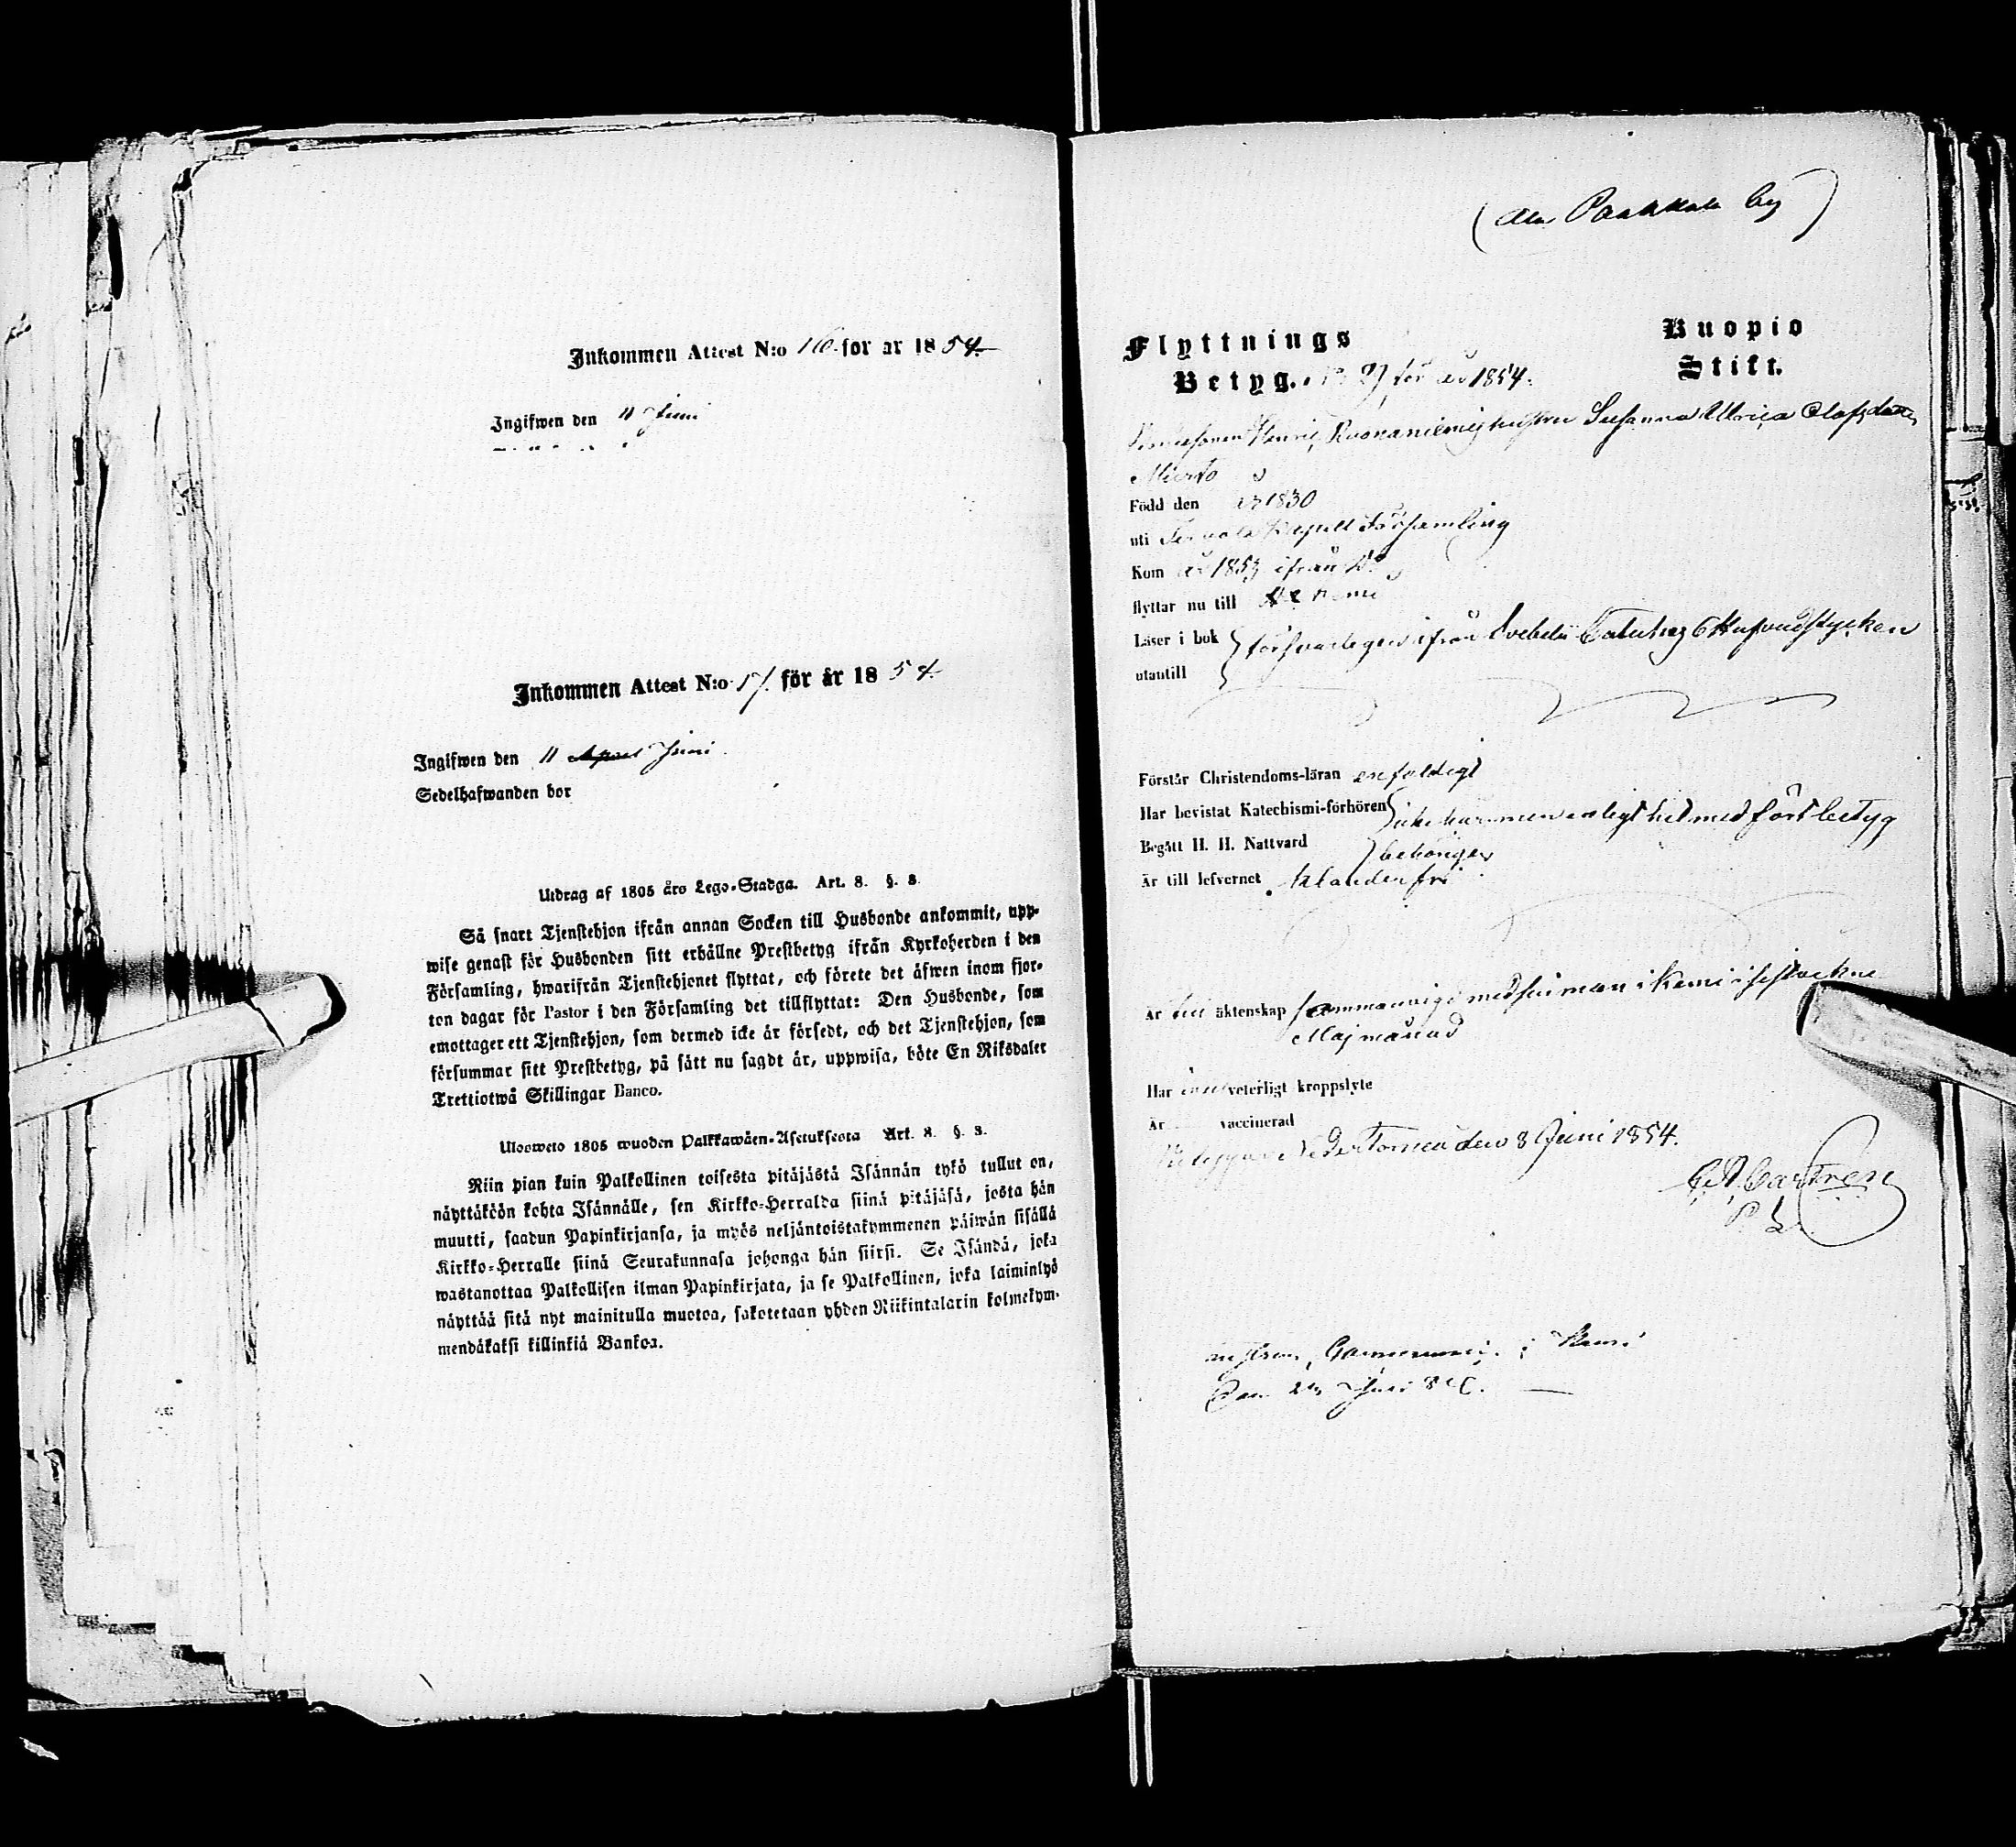 Inkommen Attest N:o 16 för år 1854.
Ingifwen den 11 Juni
Inkommen Attest N:o 17. för år 1854.
Ingifwen den 11 April Juni
Sedelhafwanden bor
Utdrag af 1805 års Lego-Stadga. Art. 8. §. 8.
Så snart Tjenstehjon ifrån annan Socken till Husbonde ankommit, upp-
wise genast för Husbonden sitt erhållne Prestbetyg ifrån Kyrkoherden i den
Församling, hwarifrån Tjenstehjonet flyttat, och förete det äfwen inom fjor-
ton dagar för Pastor i den Församling det tillflyttat: Den Husbonde, som
emottager ett Tjenstehjon, som dermed icke är försedt, och det Tjenstehjon, som
försummar sitt Prestbetyg, på sätt nu sagdt är, uppwisa, böte En Riksdaler
Trettiotwå Skillingar Banco.
Ulosweto 1805 wuoden Palkkawäen-Asetuksesta Art. 8. §. 8.
Niin pian kuin Palkollinen toisesta pitäjästä Isännän tykö tullut on,
näyttäköön kohta Isännälle, sen Kirkko-Herralda siinä pitäjäsä, josta hän
muutti, saadun Papinkirjansa, ja myös neljäntoistakymmenen päiwän sisällä
Kirkko-Herralle siinä Seurakunnasa johonga hän siirsi. Se Isändä, joka
wastanottaa Palkollisen ilman Papinkirjata, ja se Palkollinen, joka laiminlyö
näyttää sitä nyt mainitulla muotoa, sakotetaan yhden Riikintalarin kolmekym-
mendäkaksi killinkiä Bankoa.
(Ala Paakkola by)
Flyttnings
Betyg. för år 1854.
Kuopio
Stift.
Henric hustru Susanna Ulrica Olofsdotter
Mierto
Född den år 1830
uti Tervola Kapell Församling
Kom år 1853 ifrån
flyttar nu till Kemi
Läser i bok
utantill
försvarligen ifrån Svebelii Catechez 6 Hufvudstycken
Förstår Christendoms-läran enfaldigt
Har bevistat Katechismi-förhören
Begått H. H. Nattvard
icke här men enligt hitmedfört betyg
behörigen
Är till lefvernet klanderfri
Är till äktenskap sammanvigd med sin man i Kemi i sistvekne
Maj månad
Har intet veterligt kroppslyte
Är vaccinerad
Neder Torneå den 8 Juni 1854.
Castrén
i Kemi
Juni